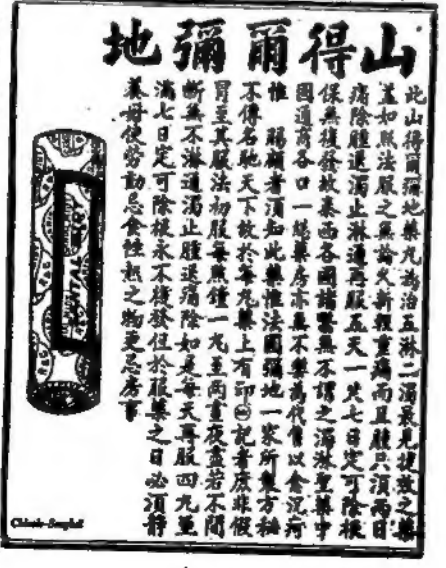 山得爾彌地
此山得爾彌地藥丸為治五淋二濁最見捷效之藥
蓋如照法服之無論久新輕重痛而且腫只須兩日
痛除腫退濁止淋通再服五天一共七日定可除根
保無復發故泰西各國諸醫無不謂之濁淋聖藥中
國通商各口一經藥房亦無不樂為代售以
惟 賜顧者須知此藥惟法國彌地一家所製方秘
不傳名馳天下故於每丸藥上有印記者庶非假
冒至其服法初服每點鐘一丸至兩晝夜盡若不間
斷無不淋通濁止腫退痛除如是每天再服四丸
滿七日定可除根永不復發但於服藥之日必須靜
養毋使勞動忌食熱之物更忌房事
SANTAL MIDY